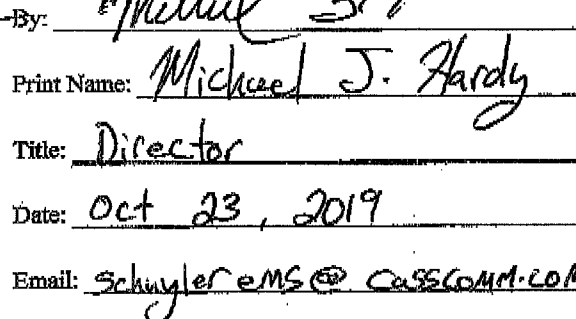 By:
Print Name: Michael J. Hardy
Title: Director
Date: Oct 23, 2019
Email: schuylerems@casscomm.com